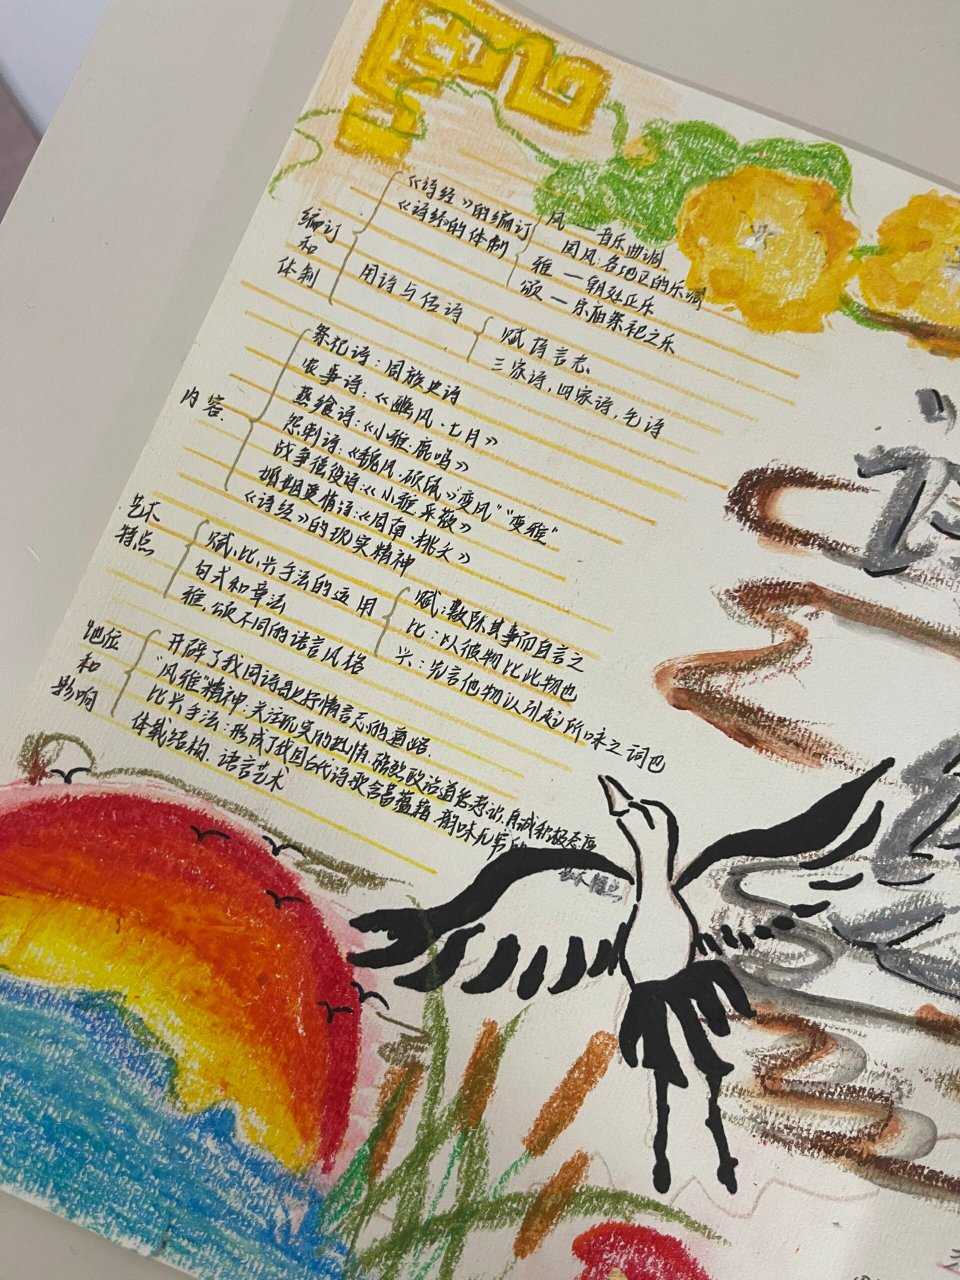 编订
和
体制
《诗经》的编订
《诗经》的体制
风 — 音乐曲调
国风:各地区的乐调
雅 — 朝廷正乐
颂 — 宗庙祭祀之乐
用诗与传诗
赋诗言志
三家诗,四家诗,毛诗
内容
祭祀诗:周族史诗
农事诗:《豳风·七月》
燕飨诗:《小雅·鹿鸣》
怨刺诗:《魏风·硕鼠》"变风""变雅"
战争徭役诗:《小雅·采薇》
婚姻爱情诗:《周南·桃夭》
《诗经》的现实精神
艺术
特点
赋、比、兴手法的运用
赋:敷陈其事而直言之
比:以彼物比此物也
兴:先言他物以引起所咏之词也
句式和章法
雅、颂不同的语言风格
地位
和
影响
开辟了我国诗歌抒情言志的道路.
"风雅"精神:关注现实的热情、强烈政治道德意识、真诚积极态度
比兴手法:形成了我国古代诗歌含蓄蕴藉、韵味无穷的
体裁结构、语言艺术